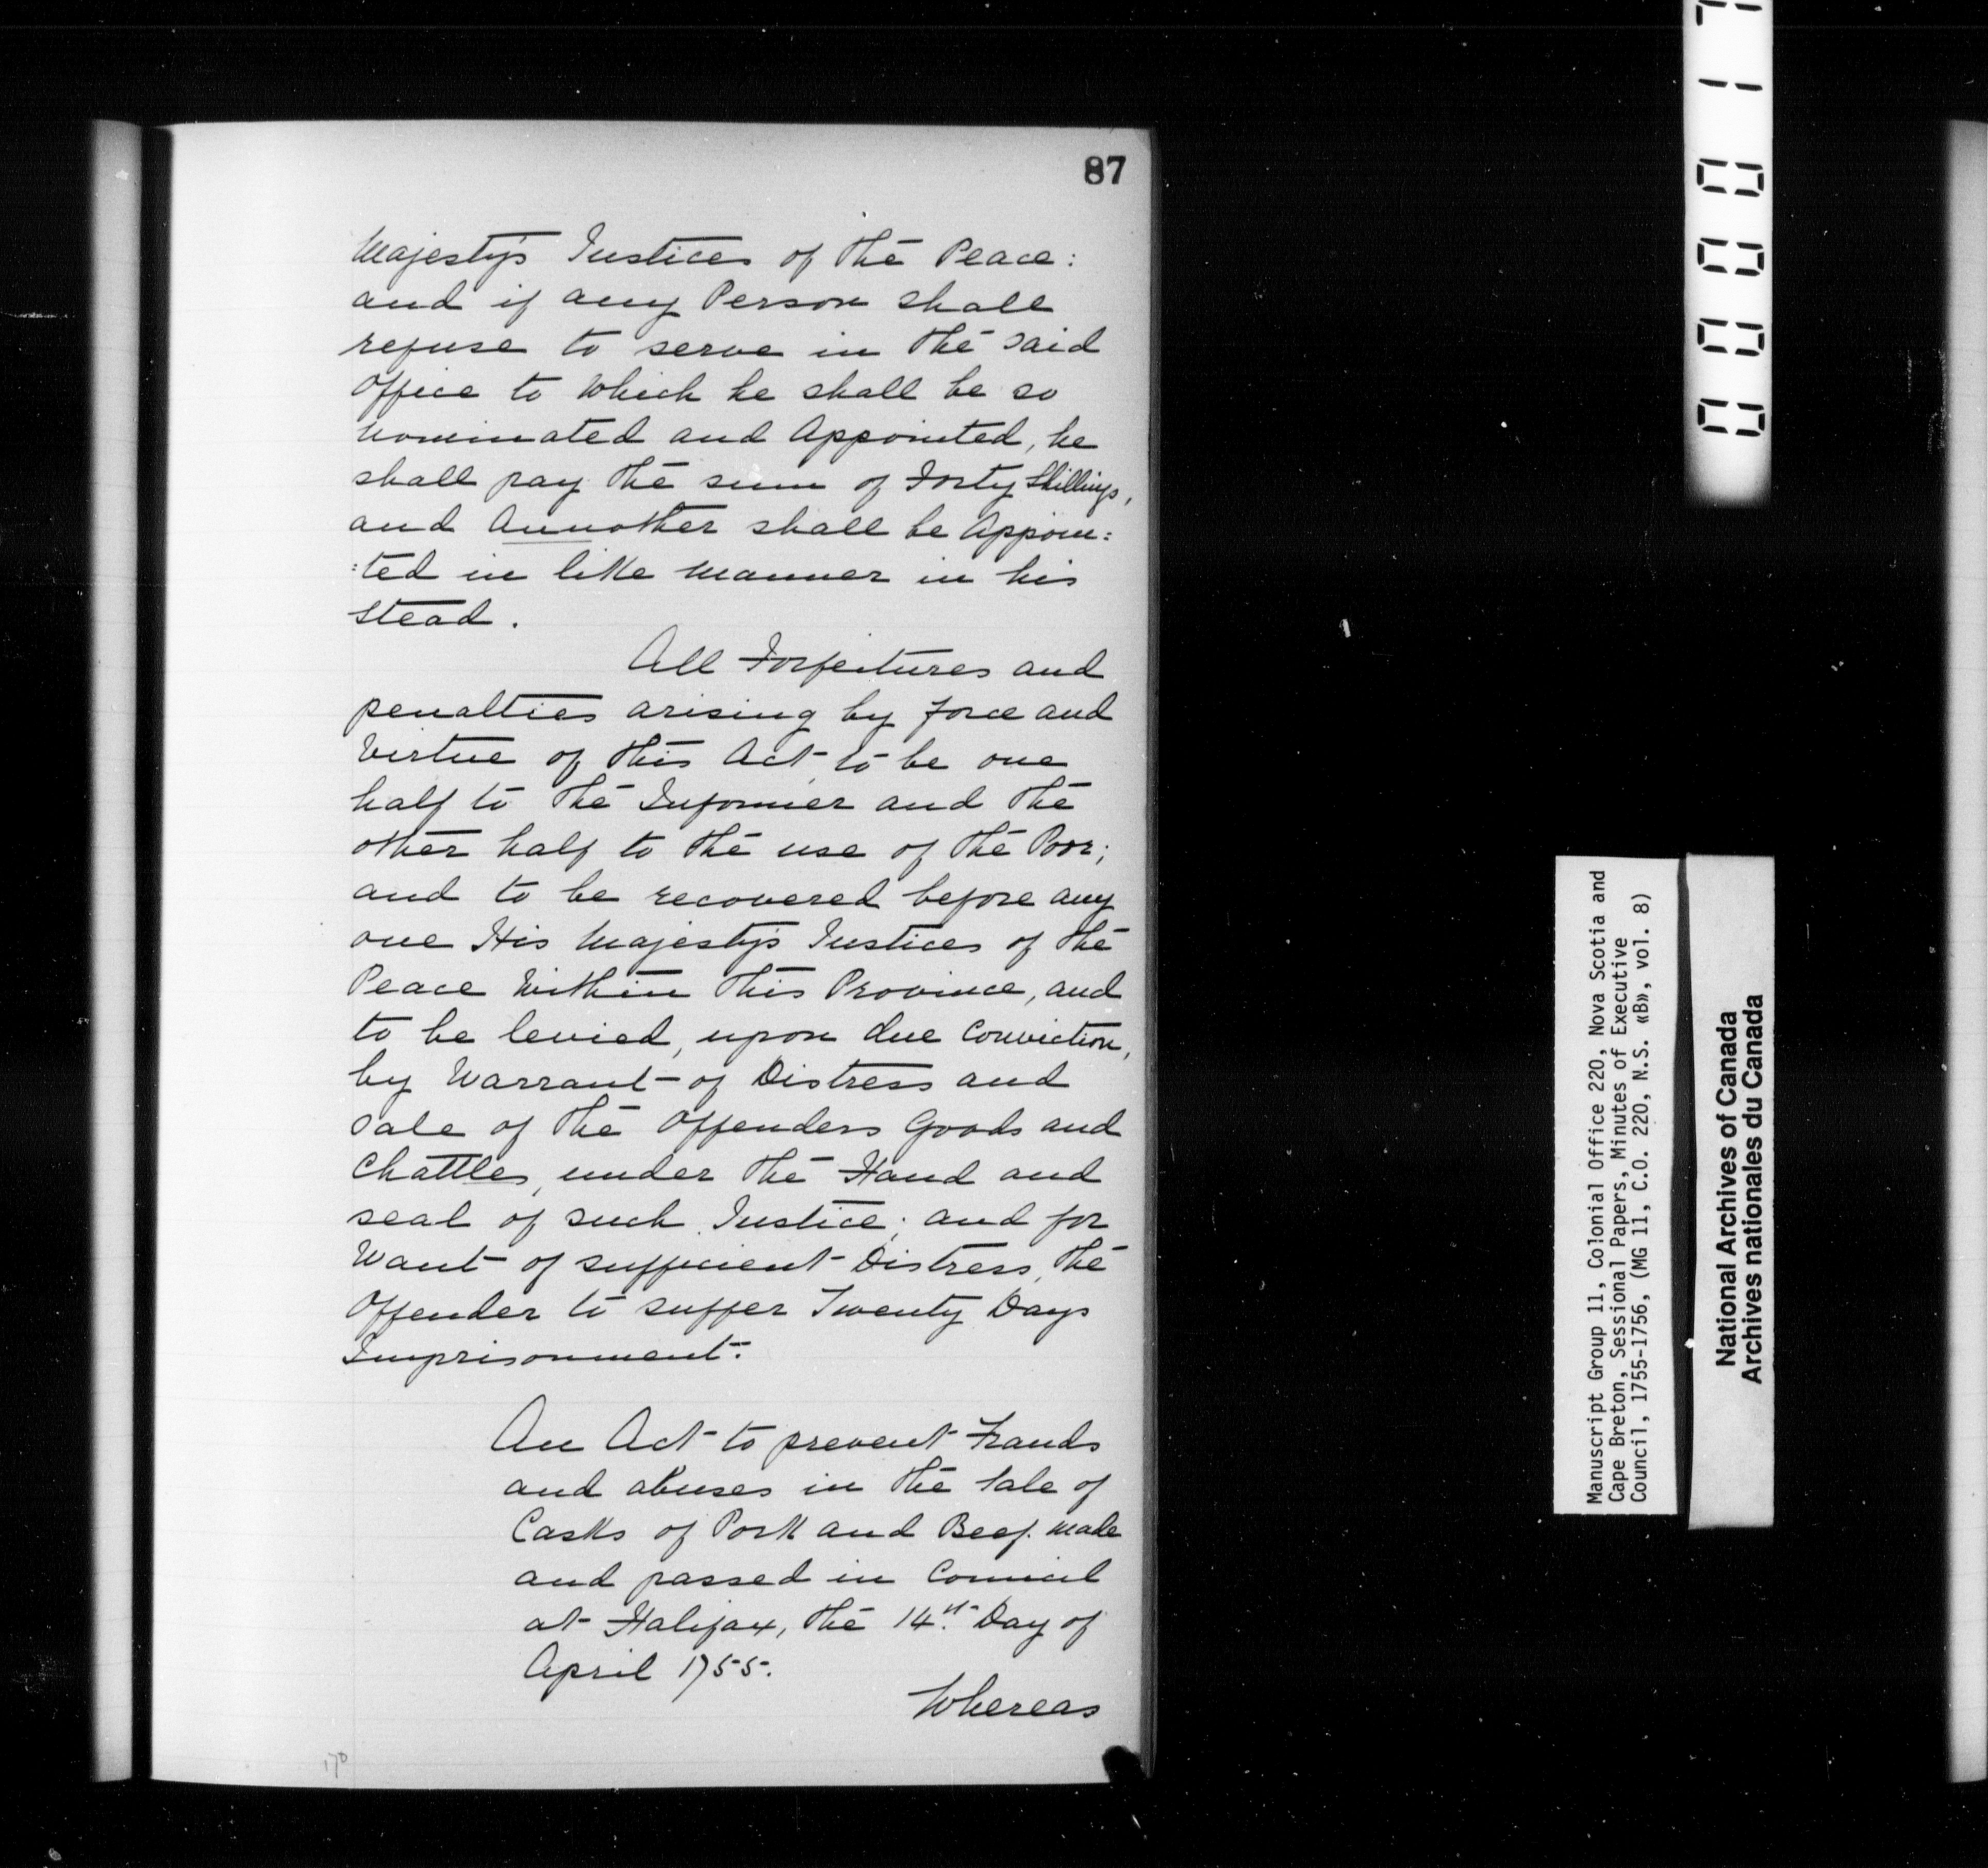 87
Majesty's Justices of the Peace:
and if any Person shall
refuse to serve in the said
Office to which he shall be so
Nominated and Appointed, he
shall pay the sum of Forty Shillings,
and Annother shall be Appoin:
:ted in like Manner in his
Stead.
All Forfeitures and
penalties arising by force and
Virtue of this Act, to be one
half to the Informer and the
other half to the use of the Poor;
and to be recovered before any
one His Majesty's Justices of the
Peace Within this Province, and
to be levied, upon due Conviction,
by Warrant of Distress and
Sale of the Offenders Goods and
Chattles, under the Hand and
seal of such Justice; and for
Want of sufficient Distress, the
Offender to suffer Twenty Days
Imprisonment.
An Act to prevent Frauds
and abuses in the Sale of
Casks of Pork and Beef. made
and passed in Council
at Halifax, the 14th Day of
April 1755.
Whereas
170
Manuscript Group 11, Colonial Office 220, Nova Scotia and
Cape Breton, Sessional Papers, Minutes of Executive
Council, 1755-1756, (MG 11, C.O. 220, N.S. «B», vol. 8)
National Archives of Canada
Archives nationales du Canada